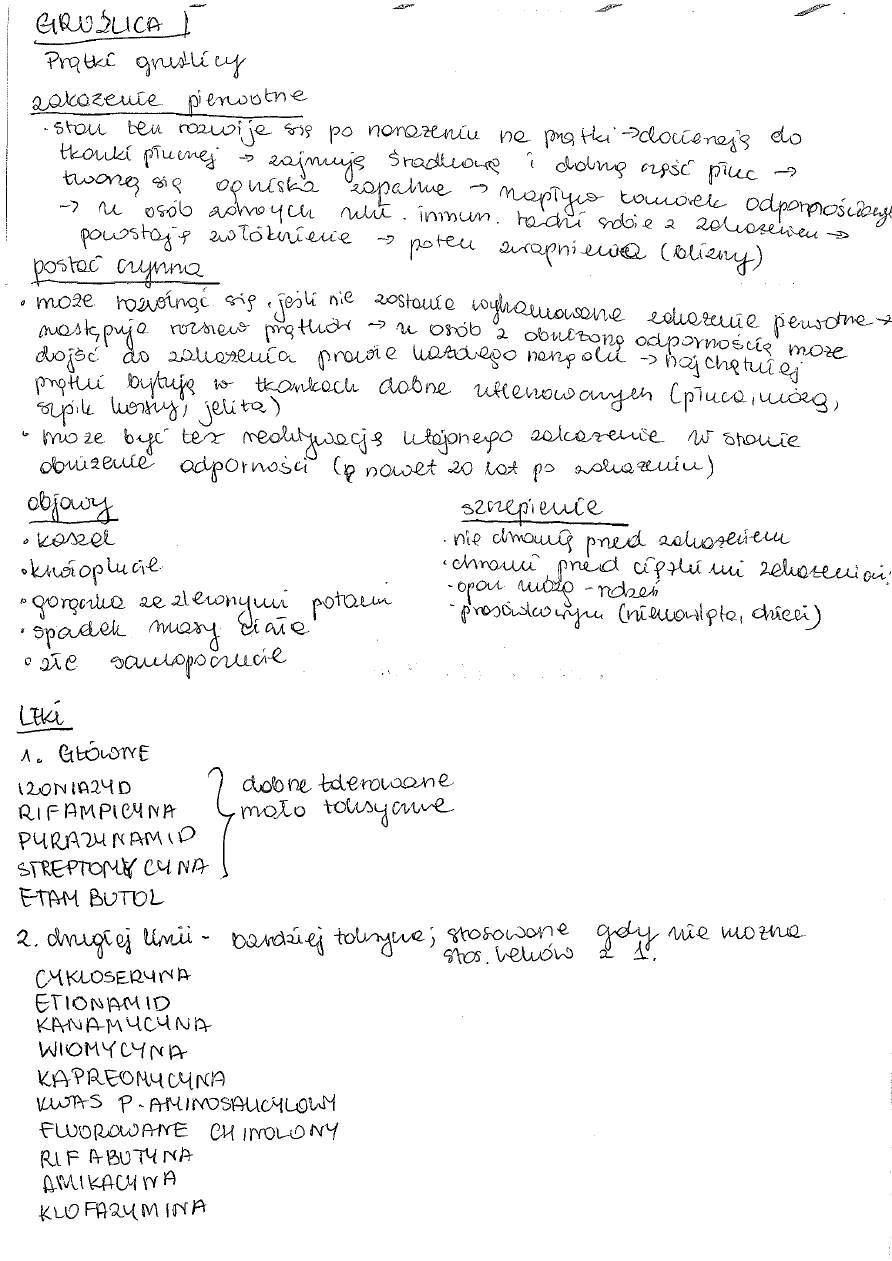 GRUŹLICA I
Prątki gruźlicy
zakażenie pierwotne
· stan ten rozwija się po narażeniu na prątki → docierają do
tkanki płucnej → zajmują środkową i dolną część płuc →
tworzą się ogniska zapalne → napływ komórek odpornościowych
→ u osób zdrowych ukł. immun. radzi sobie z zakażeniem →
powstaje zwłóknienie → potem zwapnienie (blizny)
postać czynna
• może rozwinąć się, jeśli nie zostanie wyhamowane zakażenie pierwotne →
następuje rozsiew prątków → u osób z obniżoną odpornością może
dojść do zakażenia prawie każdego narządu → najchętniej
prątki bytują w tkankach dobrze utlenowanych (płuca, mózg,
szpik kostny, jelita)
• może być też reaktywacją utajonego zakażenia w stanie
obniżenia odporności (nawet 20 lat po zakażeniu)
objawy
• kaszel
• krwioplucie
• gorączka ze zlewnymi potami
• spadek masy ciała
• złe samopoczucie
szczepienie
· nie chronią przed zakażeniem
· chroni przed ciężkimi zakażeniami:
- opon mózg - rdzeń
- prosówkowym (niemowlęta, dzieci)
Leki
1. GŁÓWNE
IZONIAZYD
RIFAMPICYNA
PYRAZYNAMID
STREPTOMYCYNA
ETAMBUTOL
dobrze tolerowane
mało toksyczne
2. drugiej linii - bardziej toksyczne; stosowane gdy nie można
stos. leków z 1.
CYKLOSERYNA
ETIONAMID
KANAMYCYNA
WIOMYCYNA
KAPREOMYCYNA
KWAS P-AMINOSALICYLOWY
FLUOROWANE CHINOLONY
RIFABUTYNA
AMIKACYNA
KLOFAZYMINA